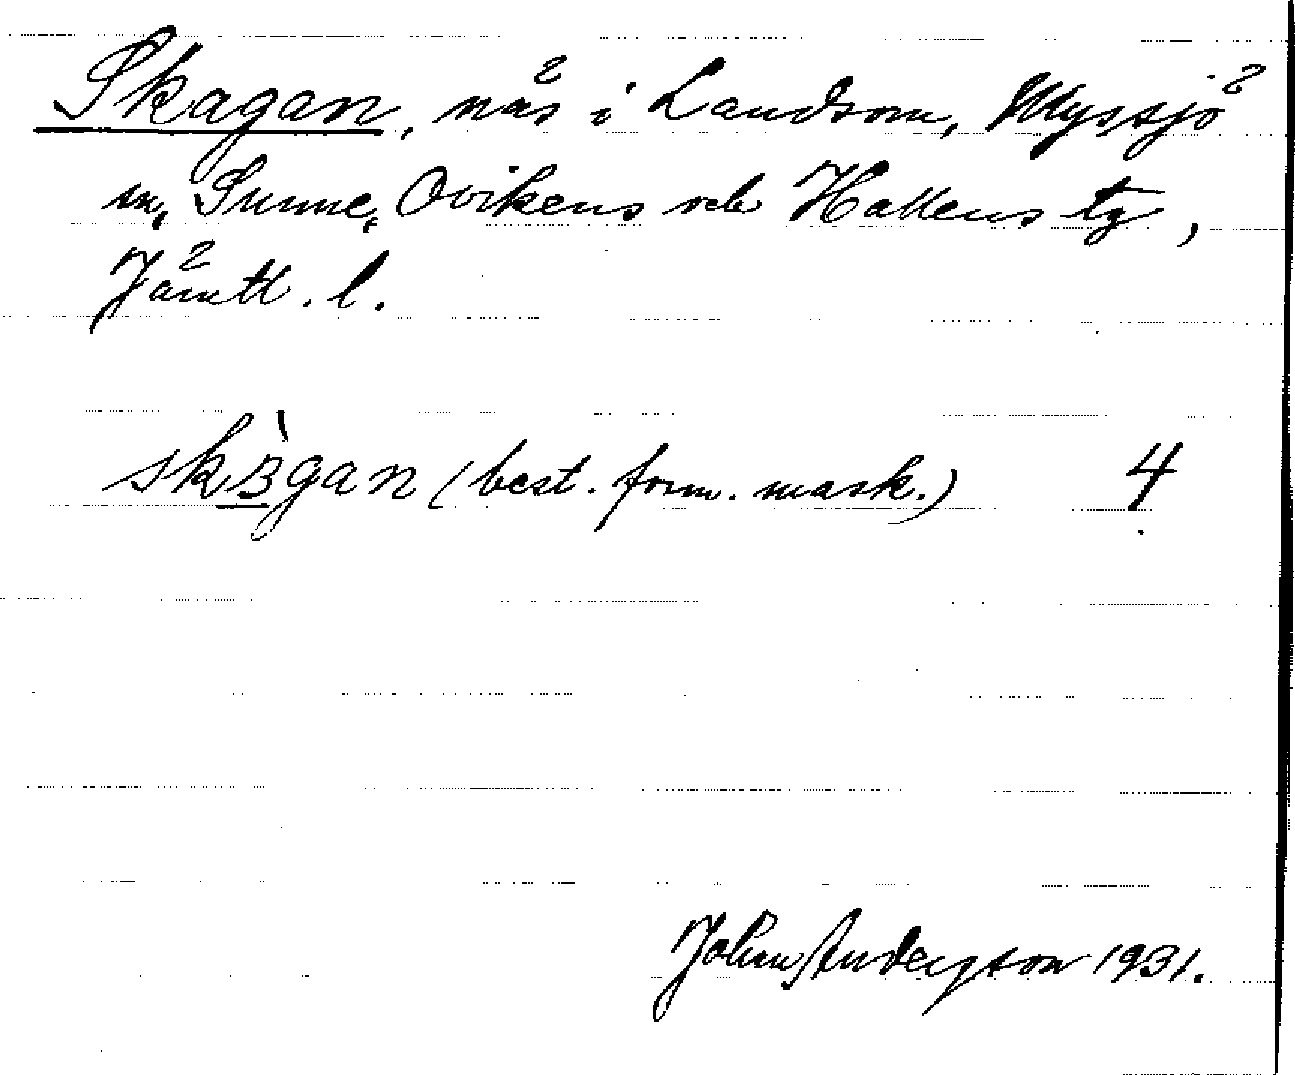 Skagan, näs i Landsom, Myssjö
sn, Sunne, Ovikens och Hallens tg,
Jämtl. l.
skɜ̀gan (best. form. mask.) 4
Johan Anderszon 1931.